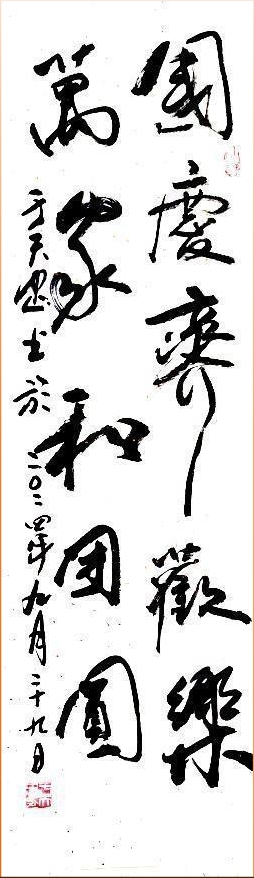 國慶齊歡樂
萬家和团圓
于天忠书於二〇二四年九月二十九日